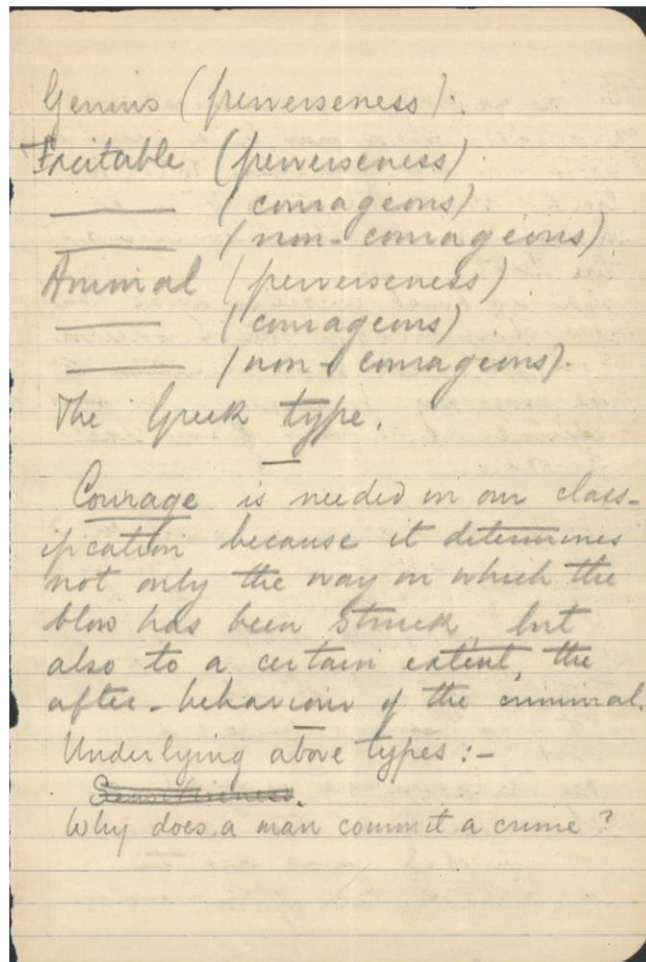 Genius (perverseness).
Irritable (perverseness)
——— (courageous)
——— (non-courageous)
Animal (perverseness)
——— (courageous)
——— (non-courageous).
The Greek type.
—
Courage is needed in our class-
ification because it determines
not only the way in which the
blow has been struck, but
also to a certain extent, the
after-behaviour of the criminal.
Underlying above types:-
Sensitiveness.
Why does a man commit a crime?